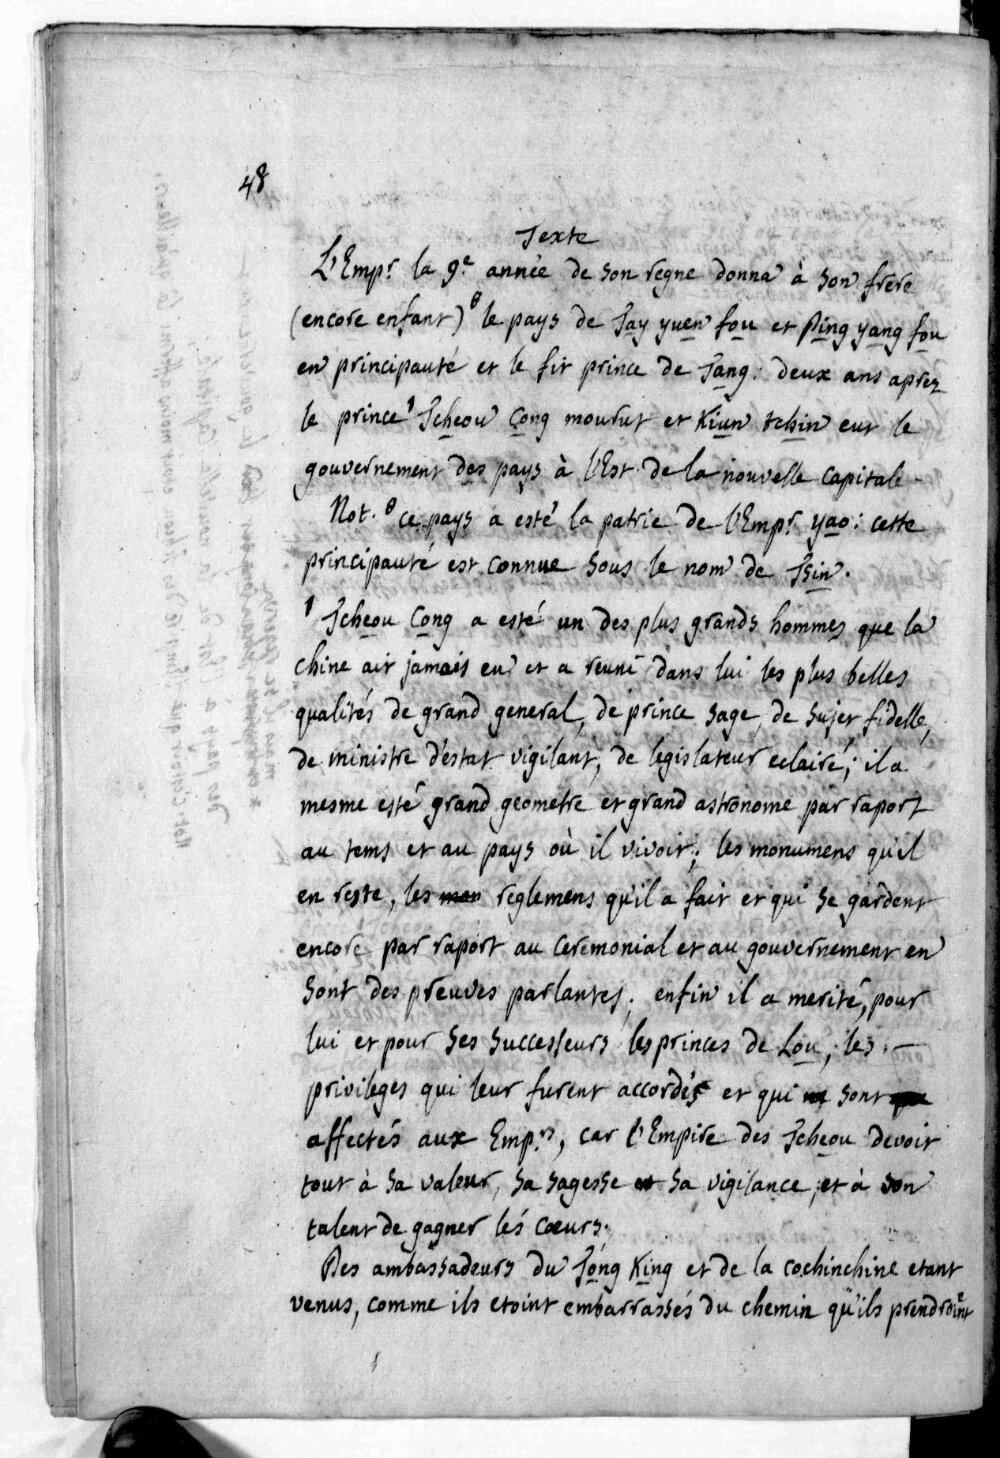 48
Texte
L'Emp.r la 9.e année de son regne donna à son frere
(encore enfant) 8 le pays de Tay yuen fou et Ping yang fou
en principauté et le fit prince de Tang. deux ans aprez
le prince 1 Tcheou Cong mourut et Kiun tchin eut le
gouvernement des pays à l'Est de la nouvelle capitale.
Not. 8 ce pays a esté la patrie de l'Emp.r yao: cette
principauté est connue sous le nom de Tsin.
1 Tcheou Cong a esté un des plus grands hommes que la
chine ait jamais eu et a reuni dans lui les plus belles
qualités de grand general, de prince sage, de sujet fidelle,
de ministre d'estat vigilant, de legislateur eclairé; il a
mesme esté grand geometre et grand astronome par raport
au tems et au pays où il vivoit; les monumens qu'il
en reste, les reglemens qu'il a fait et qui se gardent
encore par raport au ceremonial et au gouvernement en
sont des preuves parlantes; enfin il a merité, pour
lui et pour ses successeurs les princes de Lou, les
privileges qui leur furent accordés et qui sont
affectés aux Emp.rs, car l'Empire des Tcheou devoit
tout à sa valeur, sa sagesse sa vigilance, et à son
talent de gagner les cœurs.
Des ambassadeurs du Tong King et de la cochinchine etant
venus, comme ils etoint embarrassés du chemin qu'ils prendroint